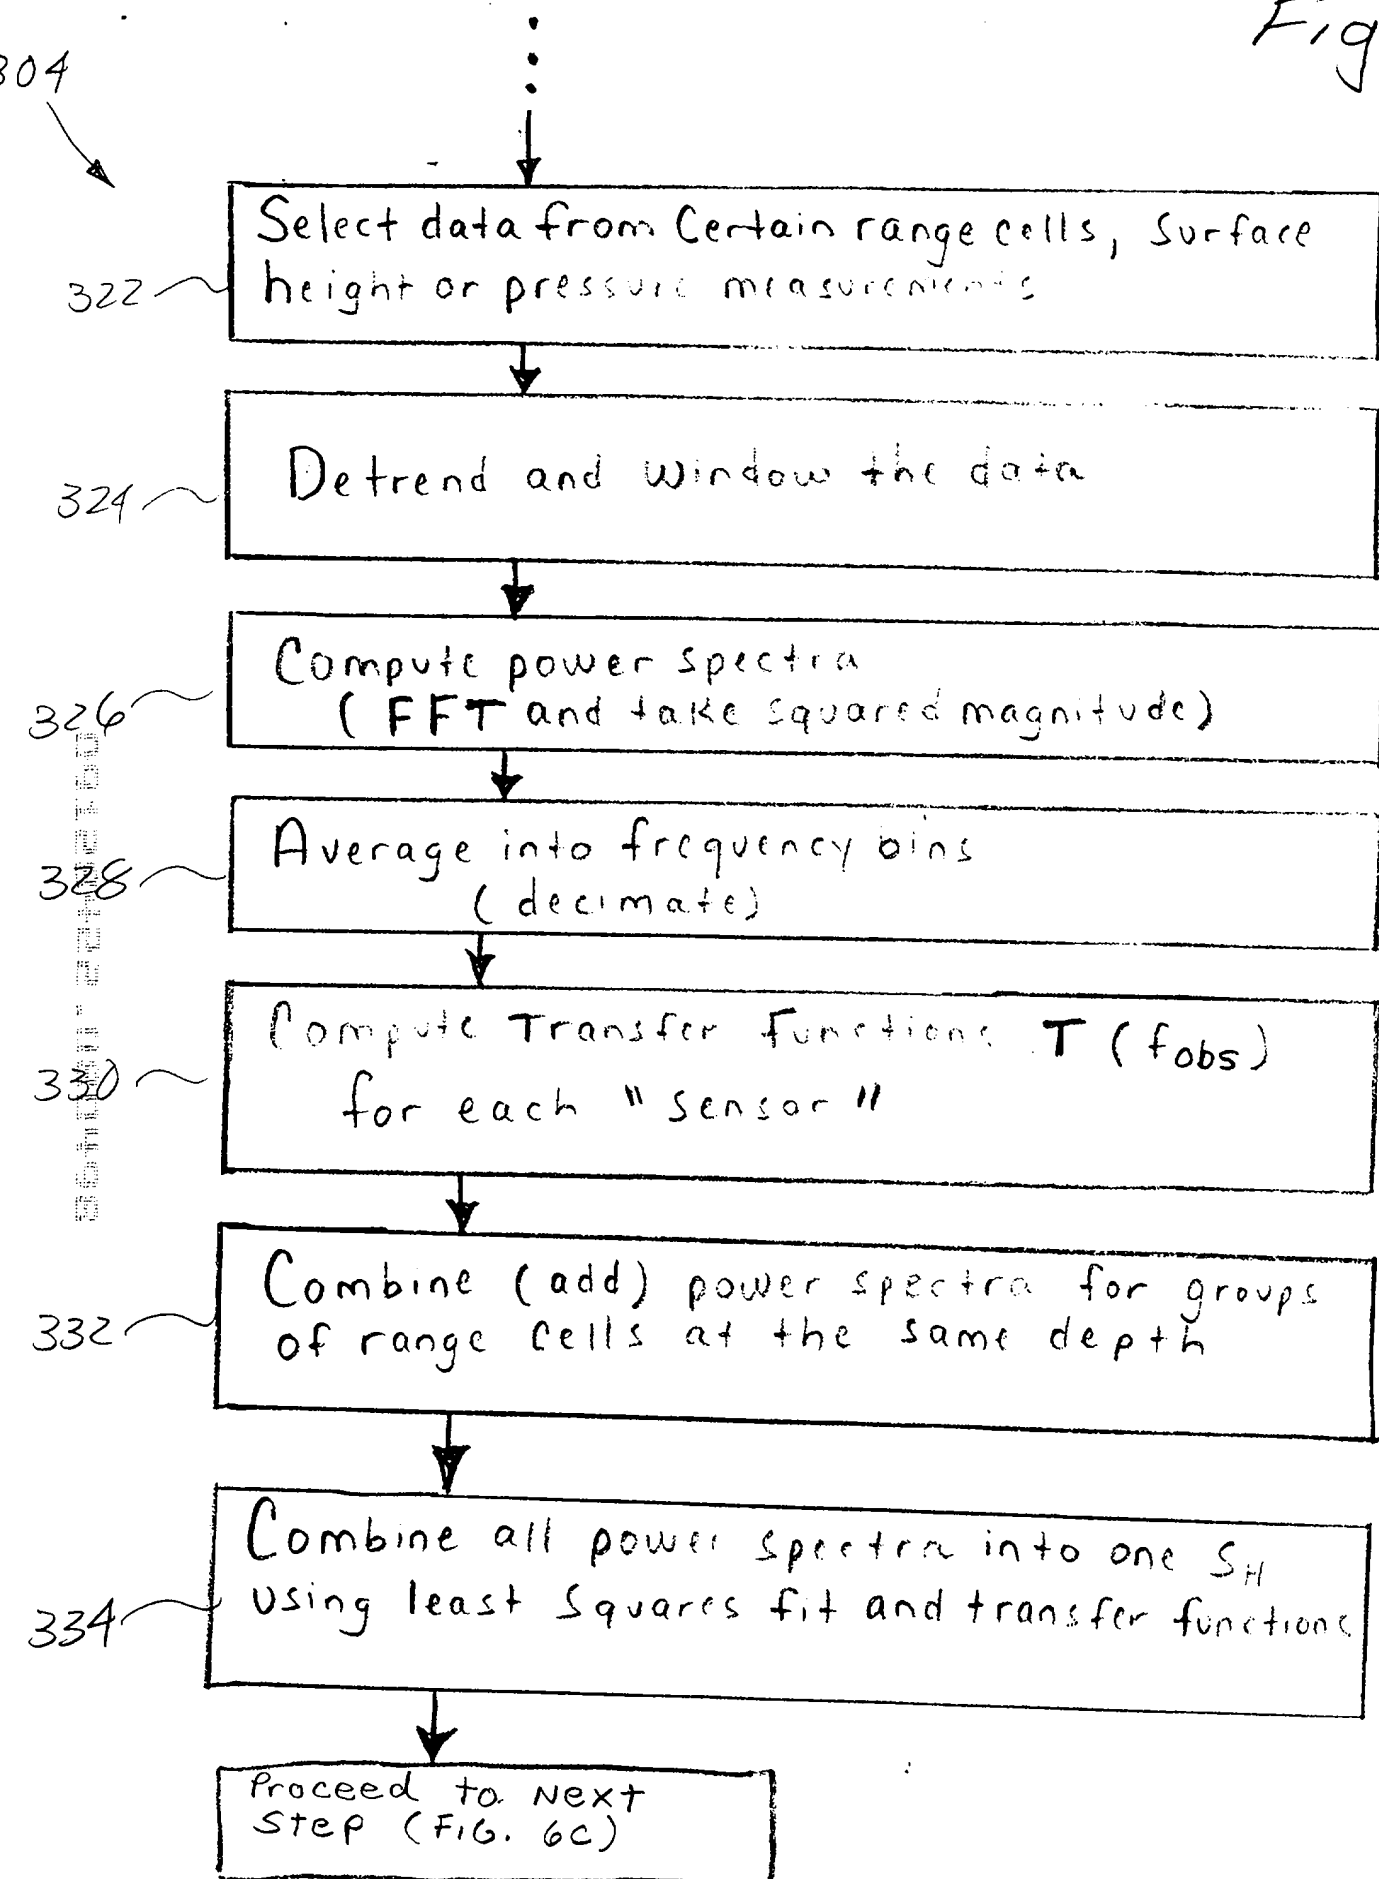 Fig
304
Select data from Certain range cells, Surface
322
height or pressure measurements
Detrend and Window the data
324
Compute power spectra
326
(FFT and take squared magnitude)
Average into frequency bins
328
(decimate)
Compute Transfer Functions T (fobs)
330
for each "sensor"
Combine (add) power spectra for groups
332
of range cells at the same depth
Combine all power spectra into one SH
334
using least Squares fit and transfer functions
Proceed to Next
Step (FIG. 6C)